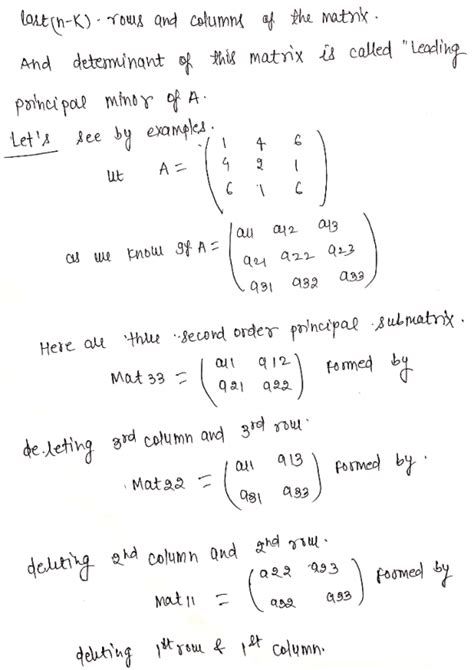 last(n-K). rows and columns of the matrix.
And determinant of this matrix is called "Leading
principal minor of A.
Let's see by examples.
let A = ( 1 4 6
4 2 1
6 1 6 )
as we know if A = ( a11 a12 a13
a21 a22 a23
a31 a32 a33 )
Here are three second order principal submatrix.
Mat 33 = ( a11 a12
a21 a22 ) formed by
deleting 3rd column and 3rd row.
Mat22 = ( a11 a13
a31 a33 ) formed by.
deleting 2nd column and 2nd row.
Mat 11 = ( a22 a23
a32 a33 ) foomed by
deleting 1st row & 1st column.